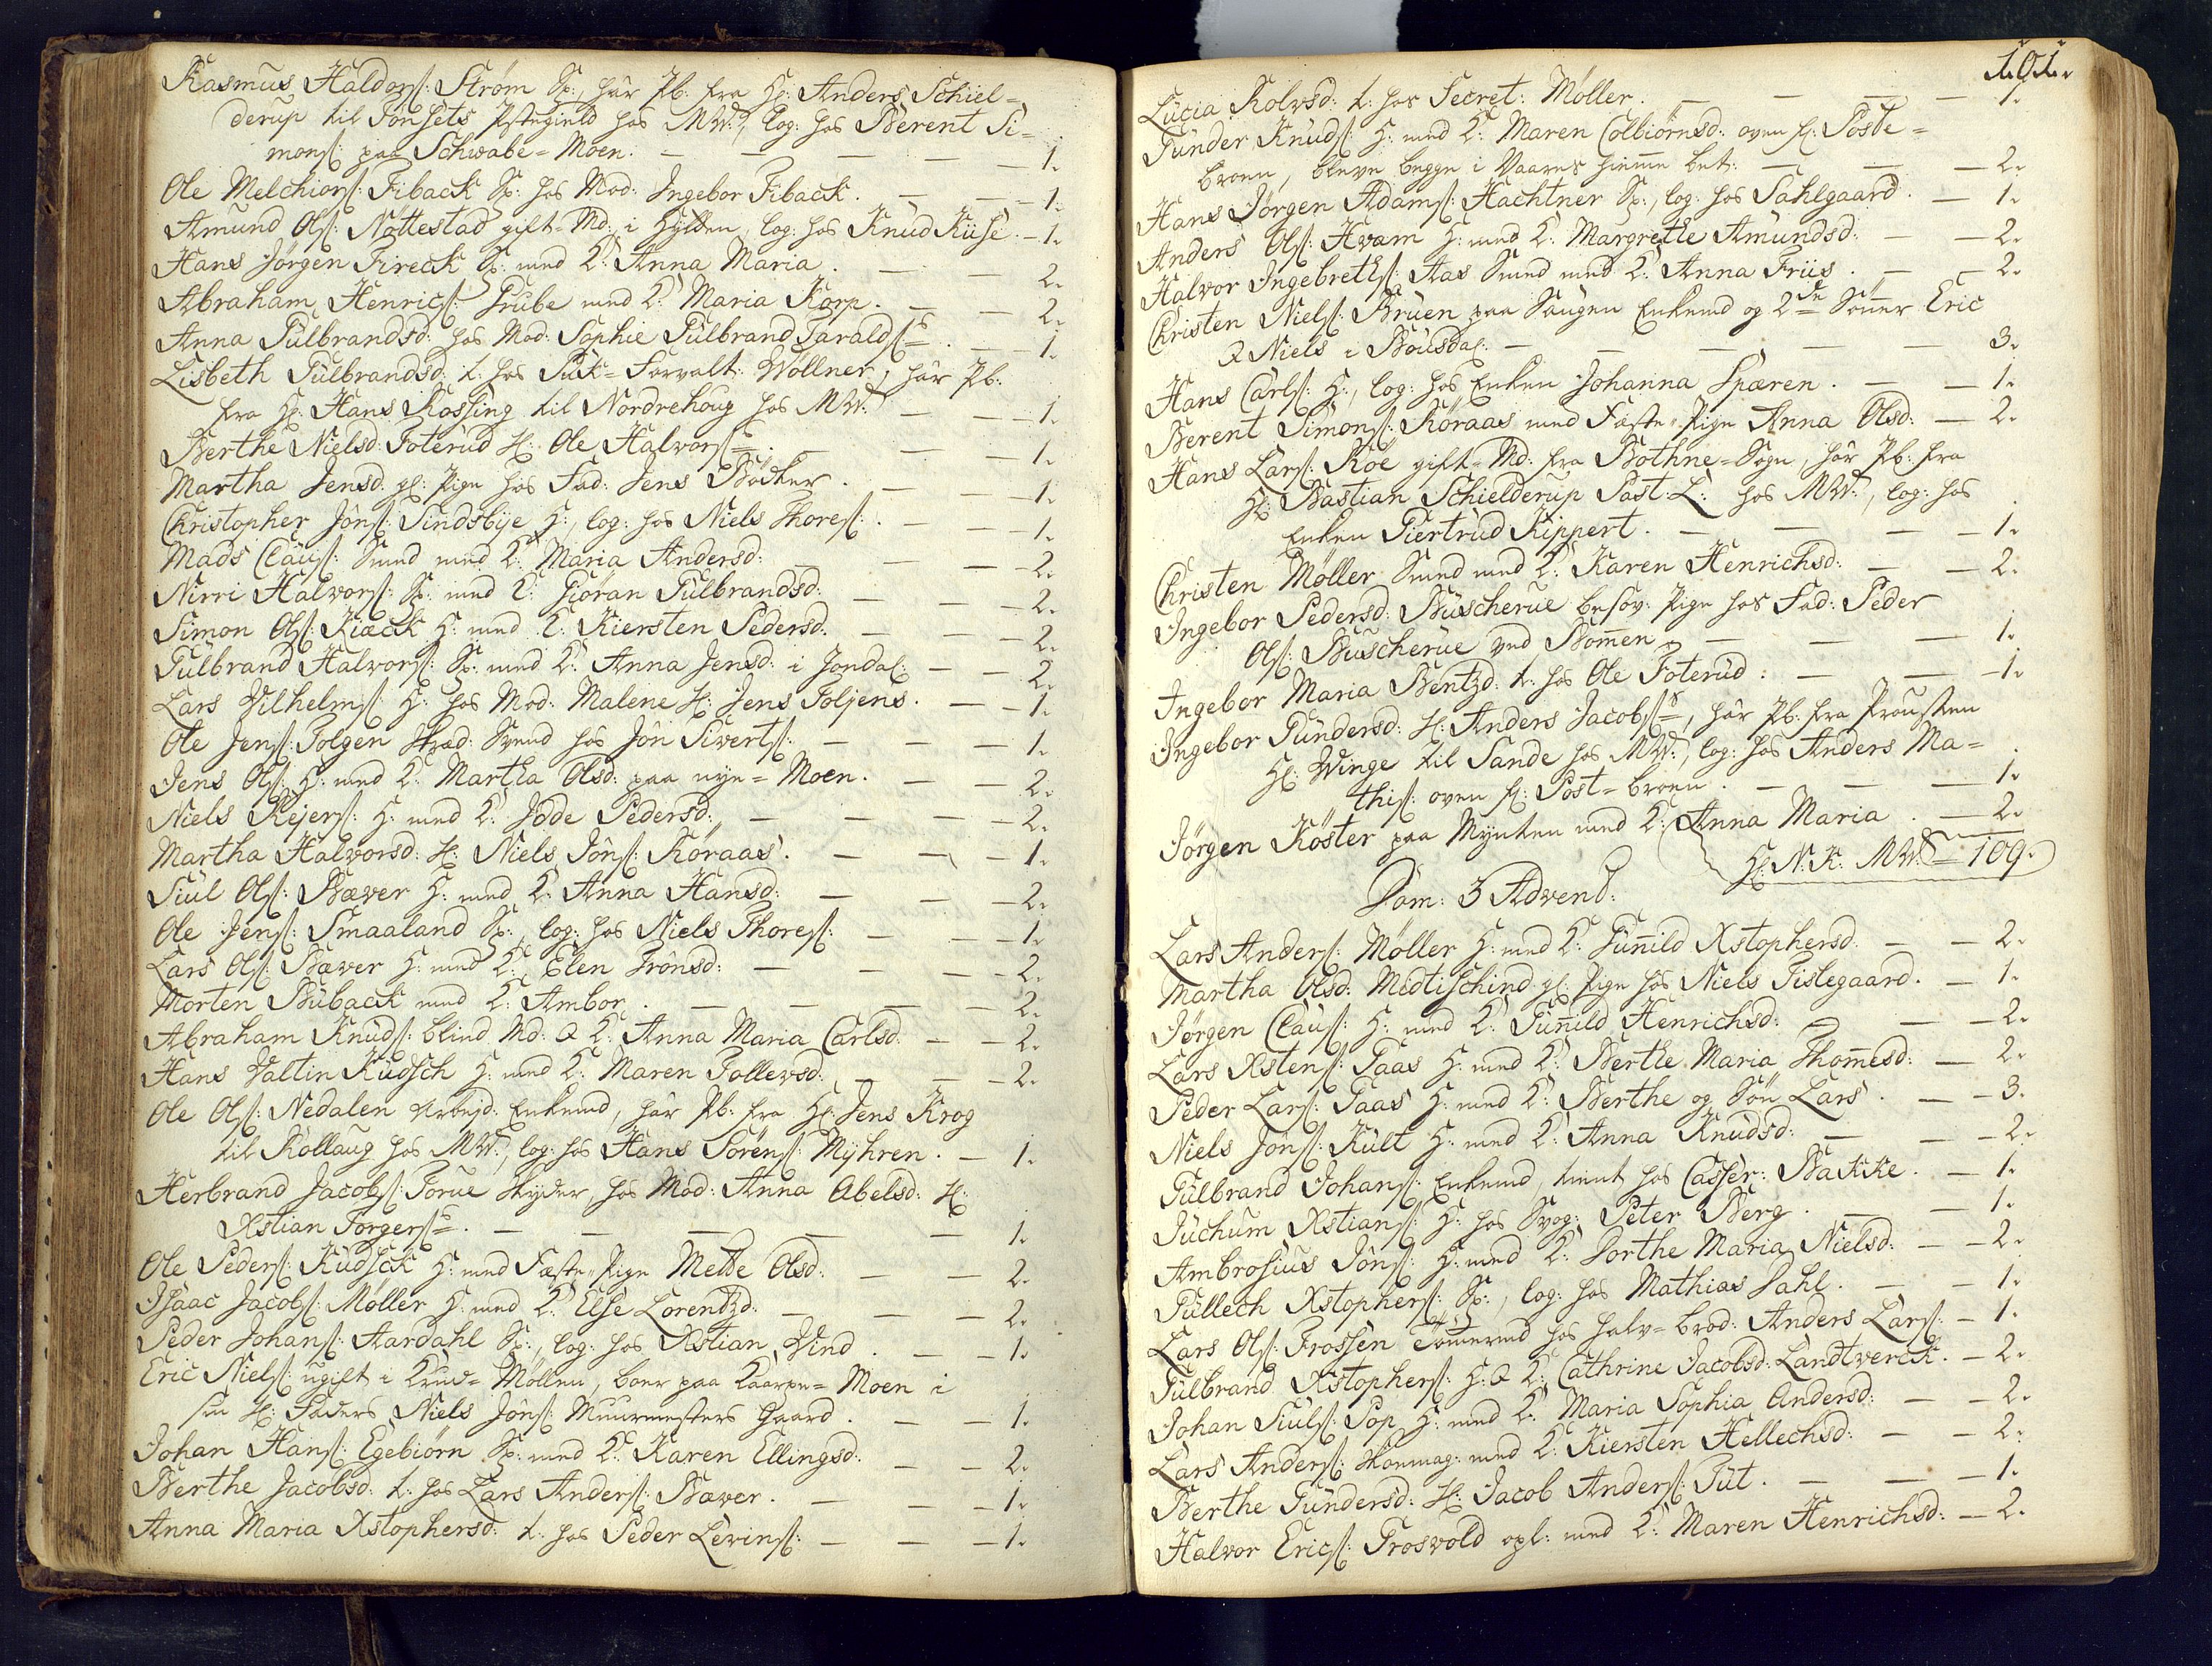 Rasmus Haldors: Strøm Sp:, har Pb: fra Hr: Anders Schiel=
derup til Tønsets Præstegield hos MW:, log: hos Berent Si=
mons: paa Schwabe=Moen. — — — — — 1.
Ole Melchiors: Fiback Sp: hos Mod: Ingebor Fiback. — — 1.
Amund Ols: Nøttestad gift=Md: i Hytten, log: hos Knud Kiise. — 1.
Hans Jørgen Fireck Sp: med K: Anna Maria. — — 2.
Abraham Henrics: Grube med K: Maria Korp. — — 2.
Anna Gulbrandsd: hos Mod: Sophie Gulbrand Taralds: — 1.
Lisbeth Gulbrandsd: t: hos Forvalt: Wøllner, har Pb:
fra Hr: Hans Rossing til Nordrehoug hos MW: — — 1.
Berthe Nielsd: Foterud H: Ole Halvors: — — 1.
Martha Jensd: gl: Pige hos Fad: Jens Bødker. — — 1.
Christopher Jøns: Sindsbye H:, log: hos Niels Thores: — — 1.
Mads Claus: Smed med K: Maria Andersd: — — 2.
Nirri Halvors: Sp: med K: Giøran Gulbrandsd: — — 2.
Simon Ols: Kiæck H: med K: Kiersten Pedersd: — — 2.
Gulbrand Halvors: Sp: med K: Anna Jensd: i Jondal: — — 2.
Lars Vilhelms: H: hos Mod: Malene H: Jens Toljens. — — 1.
Ole Jens: Tolgen Skræd: Svend hos Jøn Siverts: — — 1.
Jens Ols: H: med K: Martha Olsd: paa nye=Moen. — — 2.
Niels Rejers: H: med K: Jøde Pedersd: — — — 2.
Martha Halvorsd: H: Niels Jøns: Køraas. — — 1.
Siul Ols: Bæver H: med K: Anna Hansd: — — 2.
Ole Jens: Smaaland Sp:, log: hos Niels Thores: — — 1.
Lars Ols: Bæver H: med K: Elen Trønsd: — — 2.
Morten Buback med K: Ambor. — — — 2.
Abraham Knuds: blind Md: & K: Anna Maria Carlsd: — — 2.
Hans Valtin Kudsch H: med K: Maren Tollevsd: — — 2.
Ole Ols: Nedalen Arbejd: Enkemd, har Pb: fra Hr: Jens Krog
til Rollaug hos MW:, log: hos Hans Sørens: Myhren. — 1.
Herbrand Jacobs: Torue Skyder, hos Mod: Anna Abelsd: H:
Xstian Torgers: — — — — — 1.
Ole Peders: Kudsck H: med Fæste=Pige Mette Olsd: — — 2.
Isaac Jacobs: Møller H: med K: Else Lorentzd: — — 2.
Peder Johans: Aardahl Sp:, log: hos Xstian Vind. — — 1.
Eric Niels: ugift i Krud=Møllen, boer paa Kaarpe=Moen i
sin H: Faders Niels Jøns: Muurmesters Gaard. — — 1.
Johan Hans: Egebiørn Sp: med K: Karen Ellingsd: — — 2.
Berthe Jacobsd: t: hos Lars Anders: Bæver. — — 1.
Anna Maria Xstophersd: t: hos Peder Levins: — — 1.
101.
Lucia Rolvsd: t: hos Secret: Møller. — — — 1.
Gunder Knuds: H: med K: Maren Colbiørnsd: oven f: Poste=
broen, bleve begge i Vaares hiemme bet: — — 2.
Hans Jørgen Adams: Hachtner Sp:, log: hos Sahlgaard. — 1.
Anders Ols: Hvam H: med K: Margrethe Amundsd: — 2.
Halvor Ingebreths: Aas Smed med K: Anna Friis. — — 2.
Christen Niels: Bruen paa Saugen Enkemd og 2de Sønner Eric
& Niels i Bousdal: — — — — — 3.
Hans Carls: H:, log: hos Enken Johanna Sparen. — — 1.
Berent Simons: Køraas med Fæste=Pige Anna Olsd: — 2.
Hans Lars: Røe gift=Md: fra Bothne=Sogn, har Pb: fra
Hr: Bastian Schielderup Past: L: hos MW:, log: hos
Enken Giertrud Kippert. — — — 1.
Christen Møller Smed med K: Karen Henrichsd: — — 2.
Ingebor Pedersd: Buscherue besov: Pige hos Fad: Peder
Ols: Buscherue ved Bommen — — — 1.
Ingebor Maria Bentzd: t: hos Ole Foterud: — — 1.
Ingebor Gundersd: H: Anders Jacobs:, har Pb: fra Prousten
Hr: Winge til Sande hos MW:, log: hos Anders Ma=
this: oven f: Post=broen. — — — 1.
Jørgen Køster paa Mynten med K: Anna Maria. — 2.
Hr: N. K. MW: — 109.
Dom: 3 Advent:
Lars Anders: Møller H: med K: Gunild Xstophersd: — — 2.
Martha Olsd: Midtischind gl: Pige hos Niels Tislegaard. — 1.
Jørgen Claus: H: med K: Gunild Henrichsd: — — 2.
Lars Xstens: Paas H: med K: Berthe Maria Thomesd: — 2.
Peder Lars: Paas H: med K: Berthe og Søn Lars. — — 3.
Niels Jøns: Kult H: med K: Anna Knudsd: — — 2.
Gulbrand Johans: Enkemd, tient hos Casser: Bakke. — 1.
Juchum Xstians: H: hos Svog: Peter Berg. — — 1.
Ambrosius Jøns: H: med K: Dorthe Maria Nielsd: — 2.
Gullech Xstophers: Sp:, log: hos Mathias Dahl. — — 1.
Lars Ols: Frossen Tømmermd hos halv=brod: Anders Lars: — 1.
Gulbrand Xstophers: H: & K: Cathrine Jacobsd: Landtverck. — 2.
Johan Siuls: Sop H: med K: Maria Sophia Andersd: — — 2.
Lars Anders: Skoemag: med K: Kiersten Hellechsd: — — 2.
Berthe Gundersd: H: Jacob Anders: Gut. — — — 1.
Halvor Erics: Grosvold opl: med K: Maren Henrichsd: — 2.